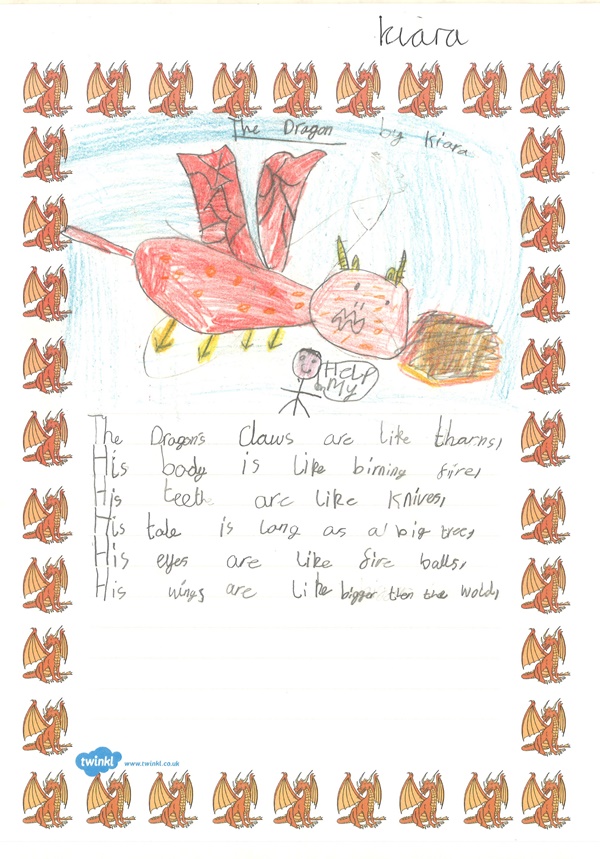 kiara
The Dragon by Kiara
HELP
My
The Dragon's claws are like tharns,
His body is like birning fire,
His teeth are like Knives,
His tale is lang as a big tree,
His eyes are like fire balls,
His wings are like bigger then the wold,
twinkl www.twinkl.co.uk